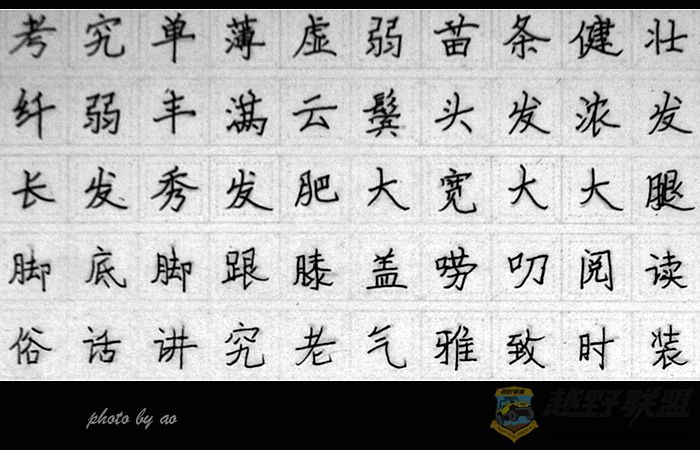 考究单薄虚弱苗条健壮
纤弱丰满云鬓头发浓发
长发秀发肥大宽大大腿
脚底脚跟膝盖唠叨阅读
俗话讲究老气雅致时装
photo by ao
越野联盟